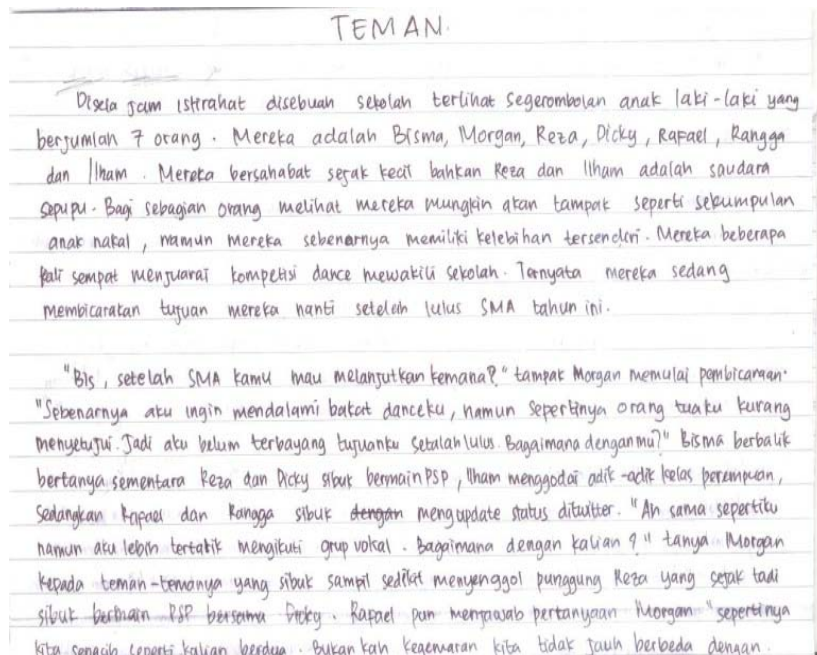 TEMAN.
Disela jam istirahat disebuah sekolah terlihat segerombolan anak laki-laki yang
berjumlah 7 orang. Mereka adalah Bisma, Morgan, Reza, Dicky, Rafael, Rangga
dan Ilham. Mereka bersahabat sejak kecil bahkan Reza dan Ilham adalah saudara
sepupu. Bagi sebagian orang melihat mereka mungkin akan tampak seperti sekumpulan
anak nakal, namun mereka sebenarnya memiliki kelebihan tersendiri. Mereka beberapa
kali sempat menjuarai kompetisi dance mewakili sekolah. Ternyata mereka sedang
membicarakan tujuan mereka nanti setelah lulus SMA tahun ini.
"Bis, setelah SMA kamu mau melanjutkan kemana?" tampak Morgan memulai pembicaraan.
"Sebenarnya aku ingin mendalami bakat danceku, namun sepertinya orang tuaku kurang
menyetujui. Jadi aku belum terbayang tujuanku setalah lulus. Bagaimana denganmu?" Bisma berbalik
bertanya sementara Reza dan Dicky sibuk bermain PSP, Ilham menggodai adik-adik kelas perempuan,
Sedangkan Rafael dan Rangga sibuk dengan mengupdate status ditwitter. "Ah sama sepertiku
namun aku lebih tertarik mengikuti grup vokal. Bagaimana dengan kalian?" tanya Morgan
kepada teman-temanya yang sibuk sampil sedikit menyenggol punggung Reza yang sejak tadi
sibuk bermain PSP bersama Dicky. Rafael pun menjawab pertanyaan Morgan "sepertinya
kita senasib seperti kalian berdua. Bukan kah kegemaran kita tidak jauh berbeda dengan.